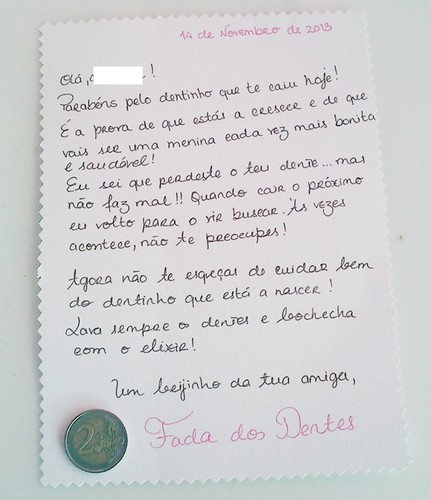 14 de Novembro de 2013
Olá, !
Parabéns pelo dentinho que te caiu hoje!
É a prova de que estás a crescer e de que
vais ser uma menina cada vez mais bonita
e saudável!
Eu sei que perdeste o teu dente... mas
não faz mal!! Quando cair o próximo
eu volto para o vir buscar. Às vezes
acontece, não te preocupes!
Agora não te esqueças de cuidar bem
do dentinho que está a nascer!
Lava sempre os dentes e bochecha
com o elixir!
Um beijinho da tua amiga,
Fada dos Dentes
2 EURO